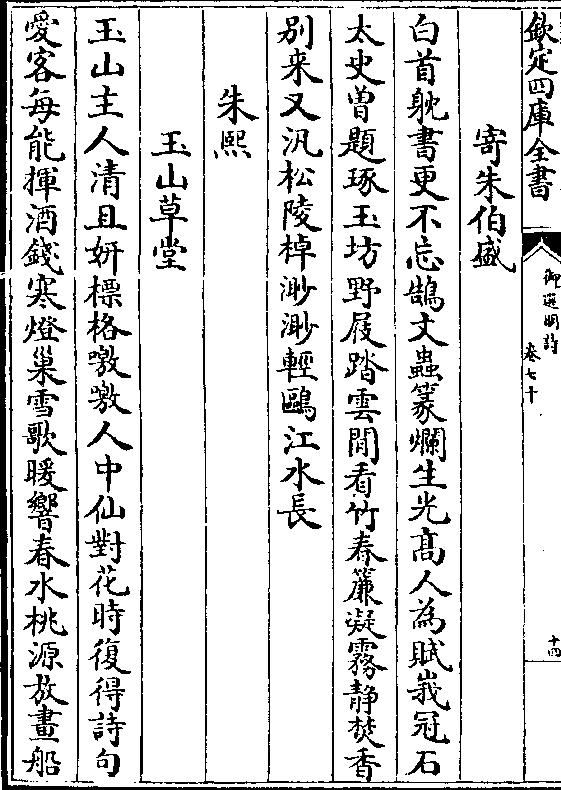 欽定四庫全書
御選明詩
卷七十
十四
寄朱伯盛
白首耽書更不忘鵠文蟲篆爛生光髙人為賦峩冠石
太史曽題琢玉坊野屐踏雲閒看竹春簾凝霧静焚香
别来又汎松陵棹渺渺輕鷗江水長
朱熙
玉山草堂
玉山主人清且妍標格噭噭人中仙對花時復得詩句
愛客每能揮酒錢寒燈巢雪歌暖響春水桃源放畫船